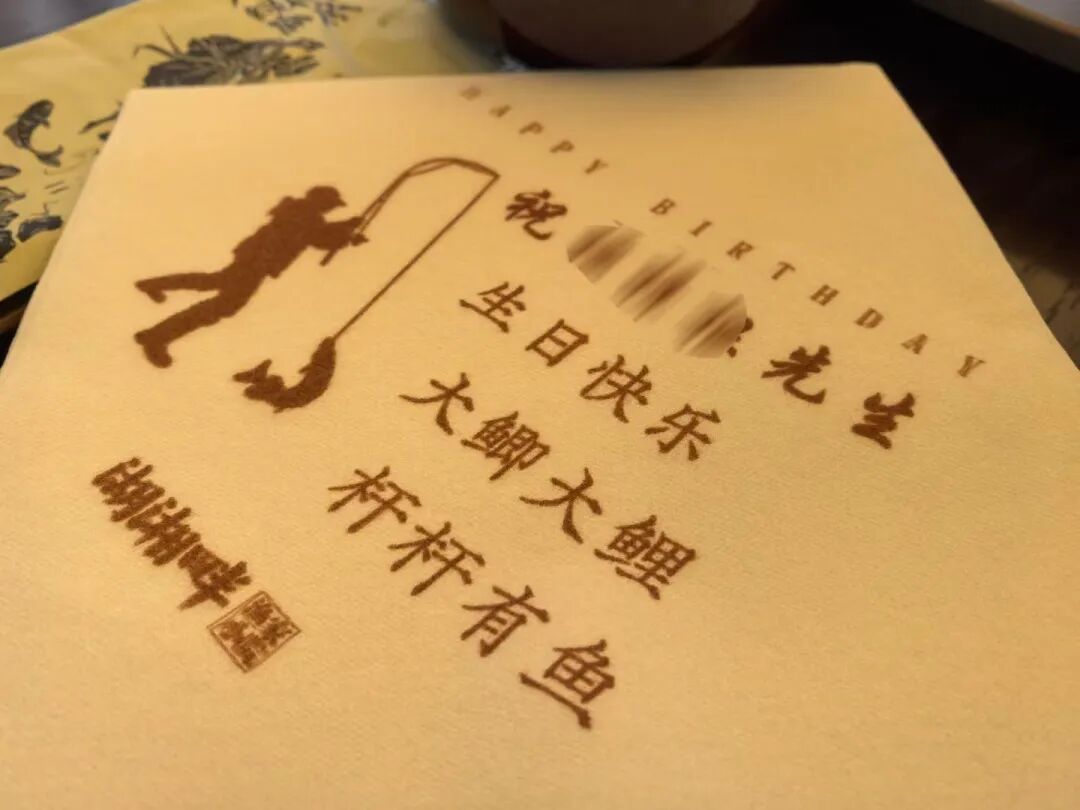 HAPPY BIRTHDAY
祝 先生
生日快乐
大鲫大鲤
杆杆有鱼
湖湘畔